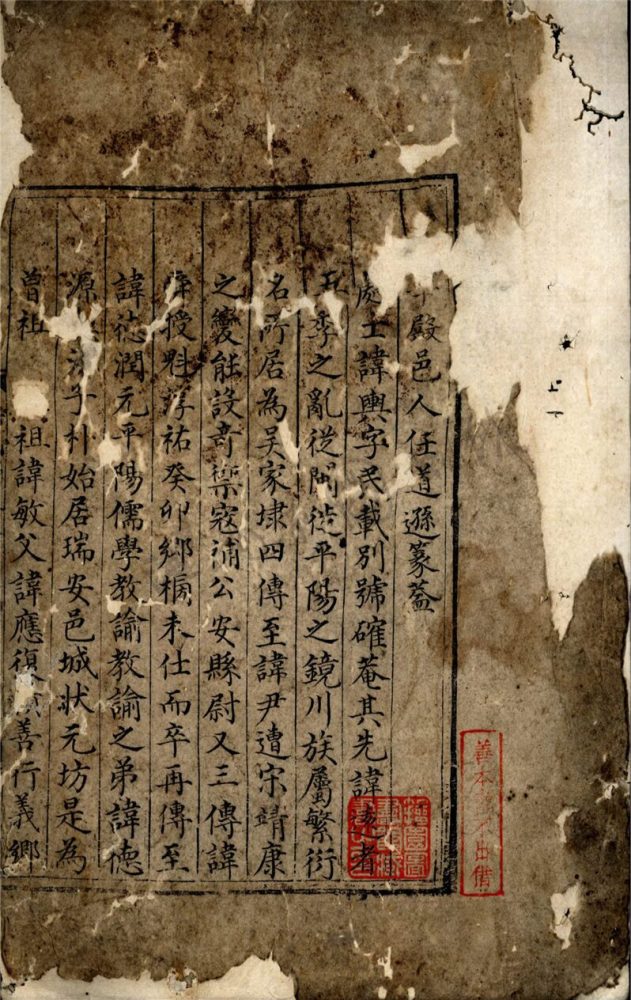 殿邑人任道遜篆蓋
處士諱輿字民載別號確菴其先諱 者
五季之亂從閩徙平陽之鏡川族屬繁衍
名所居為吴家埭四傳至諱尹遭宋靖康
之變能設奇禦寇補公安縣尉又三傳諱
授尉淳祐癸卯鄉榜未仕而卒再傳至
諱德潤元平陽儒學教諭教諭之弟諱德
源 子朴始居瑞安邑城狀元坊是為
曾祖 祖諱敏父諱應復 善行義鄉
善本 出借